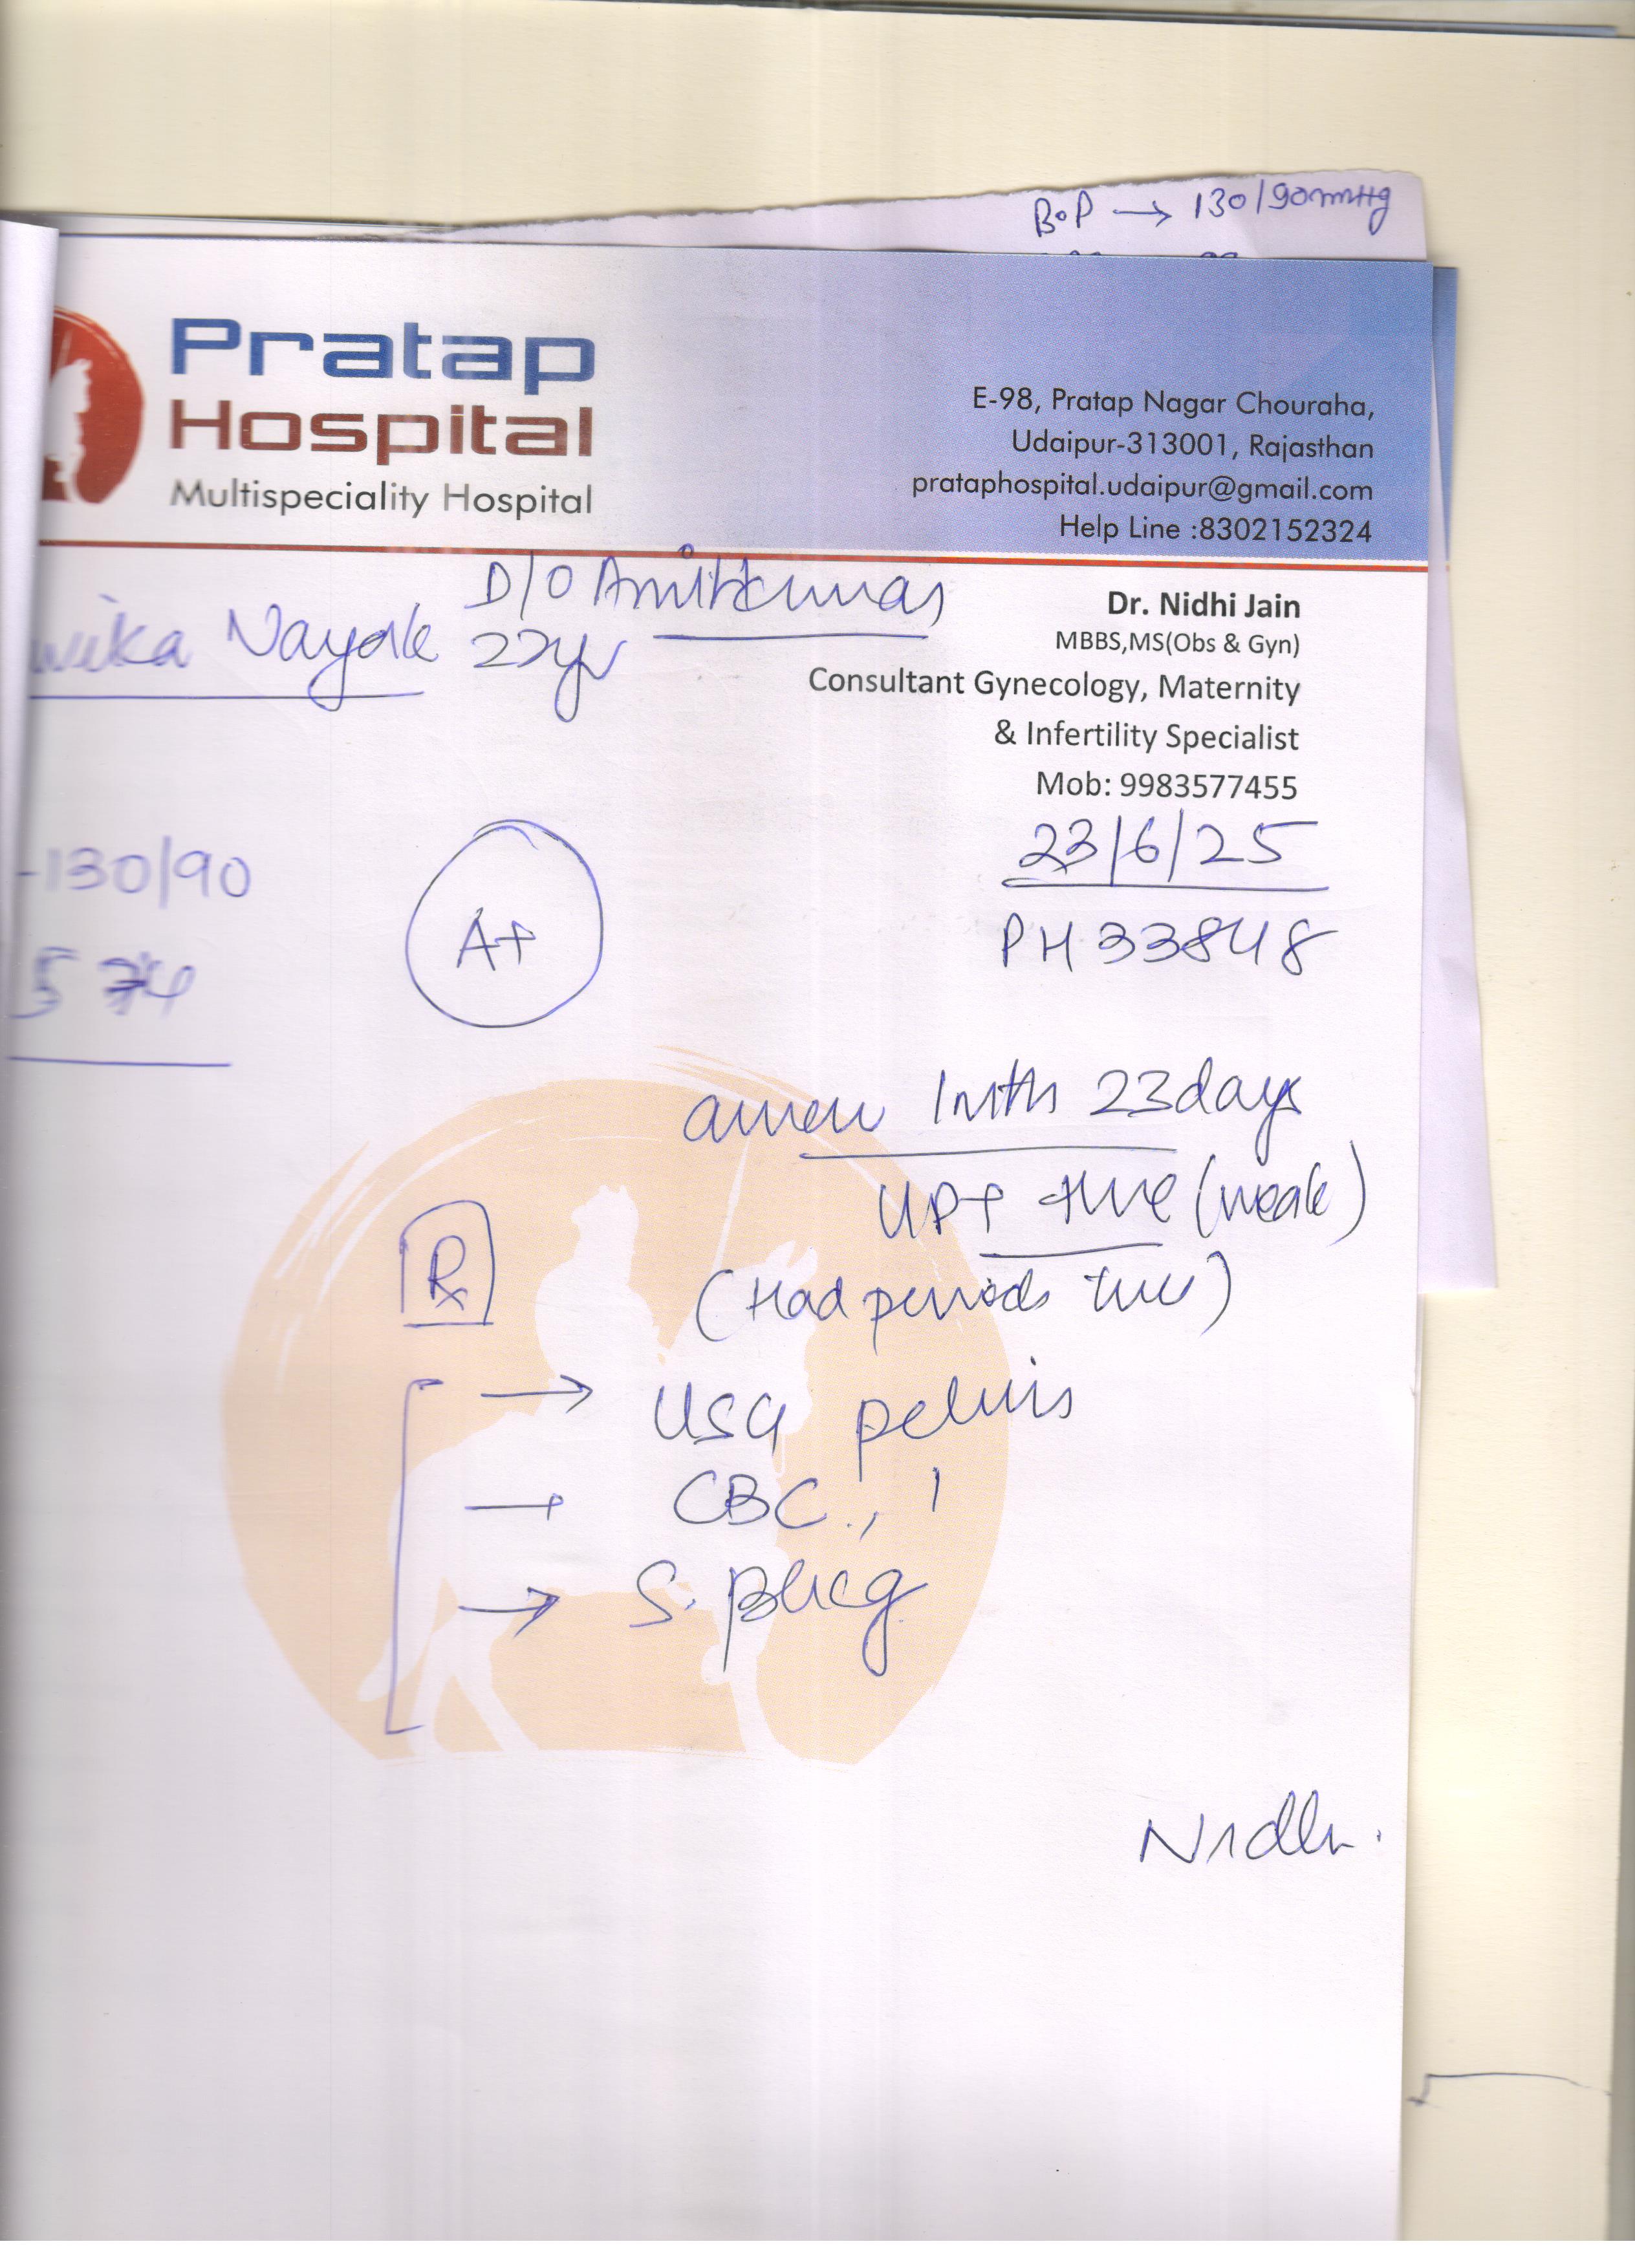 BoP → 130/90mmHg
Pratap
Hospital
Multispeciality Hospital
E-98, Pratap Nagar Chouraha,
Udaipur-313001, Rajasthan
prataphospital.udaipur@gmail.com
Help Line :8302152324
D/O Amitkumar
wika Nayak 22yr
Dr. Nidhi Jain
MBBS,MS(Obs & Gyn)
Consultant Gynecology, Maternity
& Infertility Specialist
Mob: 9983577455
23/6/25
PH 33848
-130/90
A+
amen 1mth 23days
UPT +ve (weak)
(Had periods
Rx
→ USG pelvis
→ CBC,
→ S. βhcg
Nidhi.